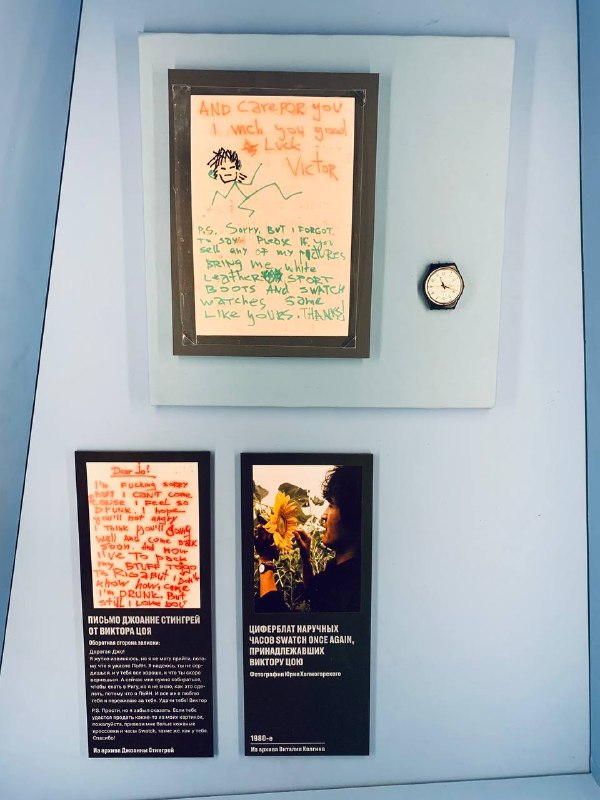 AND CARE FOR YOU
I wich you good
Luck
Victor
P.S. Sorry. BUT I FORGOT
TO SAY Please IF you
sell any of my PICTURES
BRING me white
LeatheR SPORT
BOOTS AND SWATCH
WATCHES Same
LIKE YOURS. THANKS!
Dear Jo!
I'm FUCKING SORRY
BUT I CAN'T COME
CAUSE I FEEL SO
DRUNK. I hope
you'll not angry
I think you'll doing
well and come back
soon. And now
I'VE TO pack
my STUFF TO go
TO RIGA BUT I don't
know how, cause
I'm DRUNK. But
still I LOVE YOU
ПИСЬМО ДЖОАННЕ СТИНГРЕЙ
ОТ ВИКТОРА ЦОЯ
Оборотная сторона записки:
Дорогая Джо!
Я жутко извиняюсь, но я не могу прийти, пото-
му что я ужасно ПЬЯН. Я надеюсь, ты не сер-
дишься, и у тебя все хорошо, и что ты скоро
вернешься. А сейчас мне нужно собираться,
чтобы ехать в Ригу, но я не знаю, как это сде-
лать, потому что я ПЬЯН. И все же я люблю
тебя и переживаю за тебя. Удачи тебе! Виктор
P.S. Прости, но я забыл сказать. Если тебе
удастся продать какие-то из моих картинок,
пожалуйста, привези мне белые кожаные
кроссовки и часы Swatch, такие же, как у тебя.
Спасибо!
Из архива Джоанны Стингрей
ЦИФЕРБЛАТ НАРУЧНЫХ
ЧАСОВ SWATCH ONCE AGAIN,
ПРИНАДЛЕЖАВШИХ
ВИКТОРУ ЦОЮ
Фотография Юрия Холмогорского
1980-е
Из архива Виталия Калгина